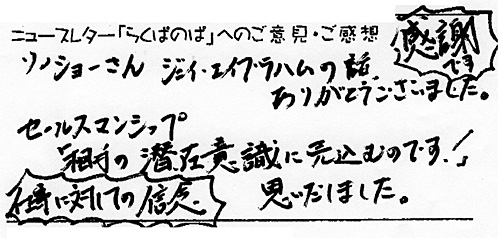 ニュースレター「らくぱのぱ」へのご意見・ご感想
感謝です
ソノショーさん ジェイ・エイブラハムの話
ありがとうございました。
セールスマンシップ
「相手の潜在意識に売込むのです!」
仕事に対しての信念 思いだしました。